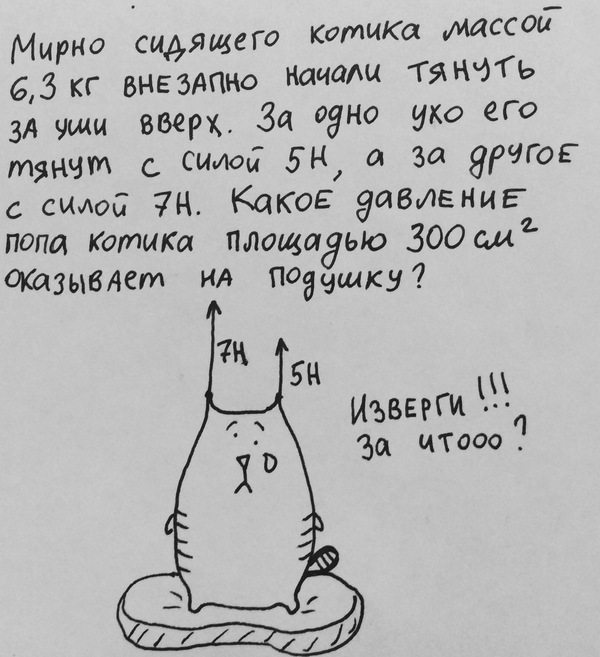 Мирно сидящего котика массой
6,3 кг внезапно начали тянуть
за уши вверх. За одно ухо его
тянут с силой 5Н, а за другое
с силой 7Н. Какое давление
попа котика площадью 300 см²
оказывает на подушку?
7Н
5Н
Изверги!!!
За что​оо?